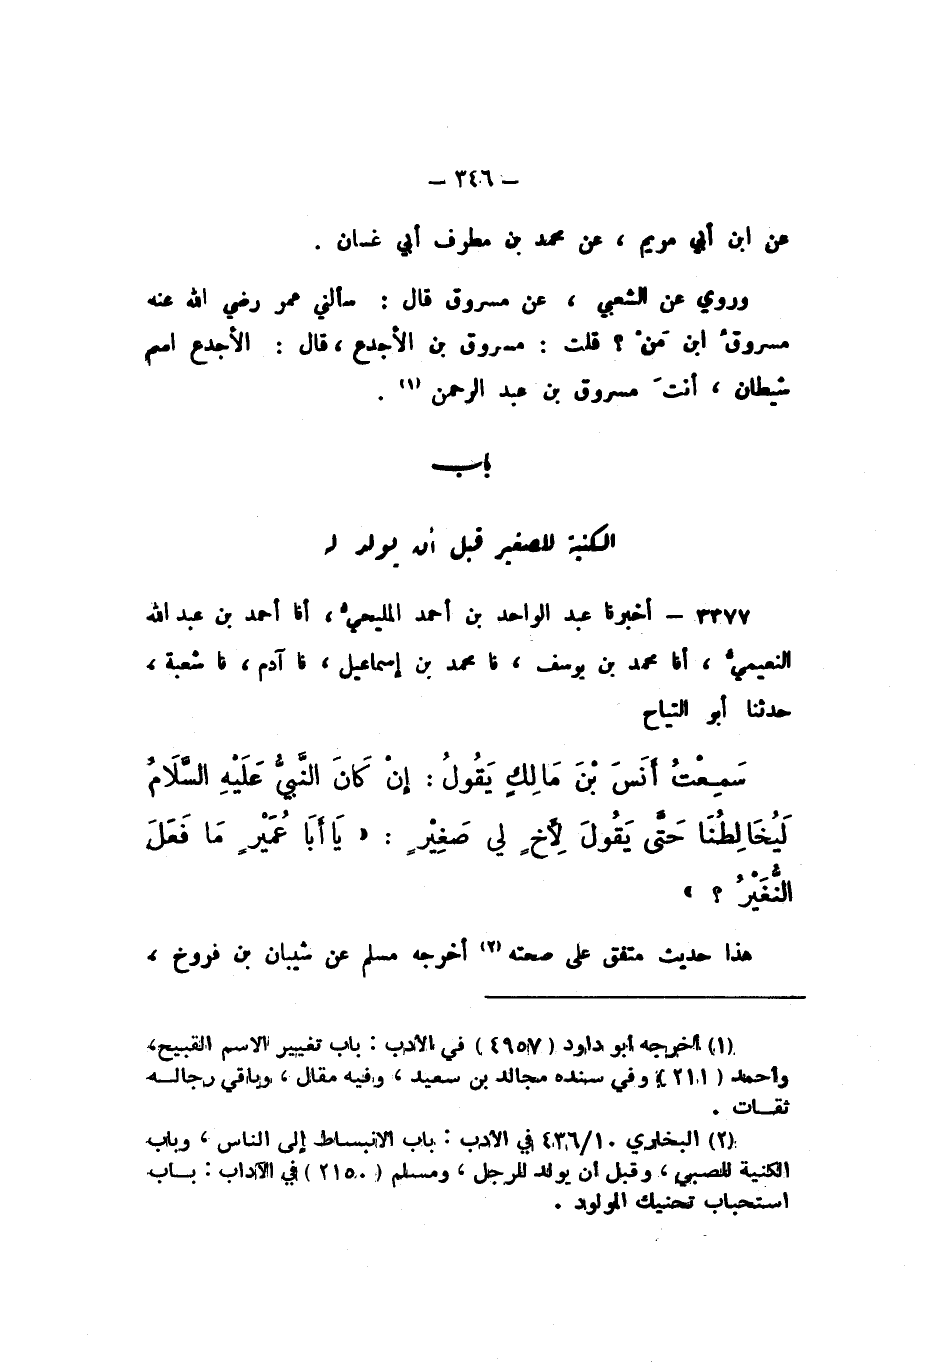 – ٣٤٦ –
عن ابن أبي مريم ، عن محمد بن مطرف أبي غسان .
وروي عن الشعبي ، عن مسروق قال : سألني عمر رضي الله عنه
مسروقُ ابن مَنْ ؟ قلت : مسروق بن الأجدع ، قال : الأجدع اسم
شيطان ، أنتَ مسروق بن عبد الرحمن (١) .
باب
الكنية للصغير قبل أن يولد له
٣٣٧٧ – أخبرنا عبد الواحد بن أحمد المليحيُّ ، أنا أحمد بن عبد الله
النعيميُّ ، أنا محمد بن يوسف ، نا محمد بن إسماعيل ، نا آدم ، نا شعبة ،
حدثنا أبو التياح
سَمِعْتُ أَنَسَ بْنَ مَالِكٍ يَقُولُ : إِنْ كَانَ النَّبِيُّ عَلَيْهِ السَّلَامُ
لَيُخَالِطُنَا حَتَّى يَقُولَ لِأَخٍ لِي صَغِيْرٍ : « يَا أَبَا عُمَيْرٍ مَا فَعَلَ
النُّغَيْرُ ؟ »
هذا حديث متفق على صحته (٢) أخرجه مسلم عن شيبان بن فروخ ،
(١) أخرجه أبو داود ( ٤٩٥٧ ) في الأدب : باب تغيير الاسم القبيح،
وأحمد ( ٢١١ ) وفي سنده مجالد بن سعيد ، وفيه مقال ، وباقي رجالـه
ثقـات .
(٢) البخاري ٤٣٦/١٠ في الأدب : باب الانبساط إلى الناس ، وباب
الكنية للصبي ، وقبل أن يولد للرجل ، ومسلم ( ٢١٥٠ ) في الآداب : بـاب
استحباب تحنيك المولود .